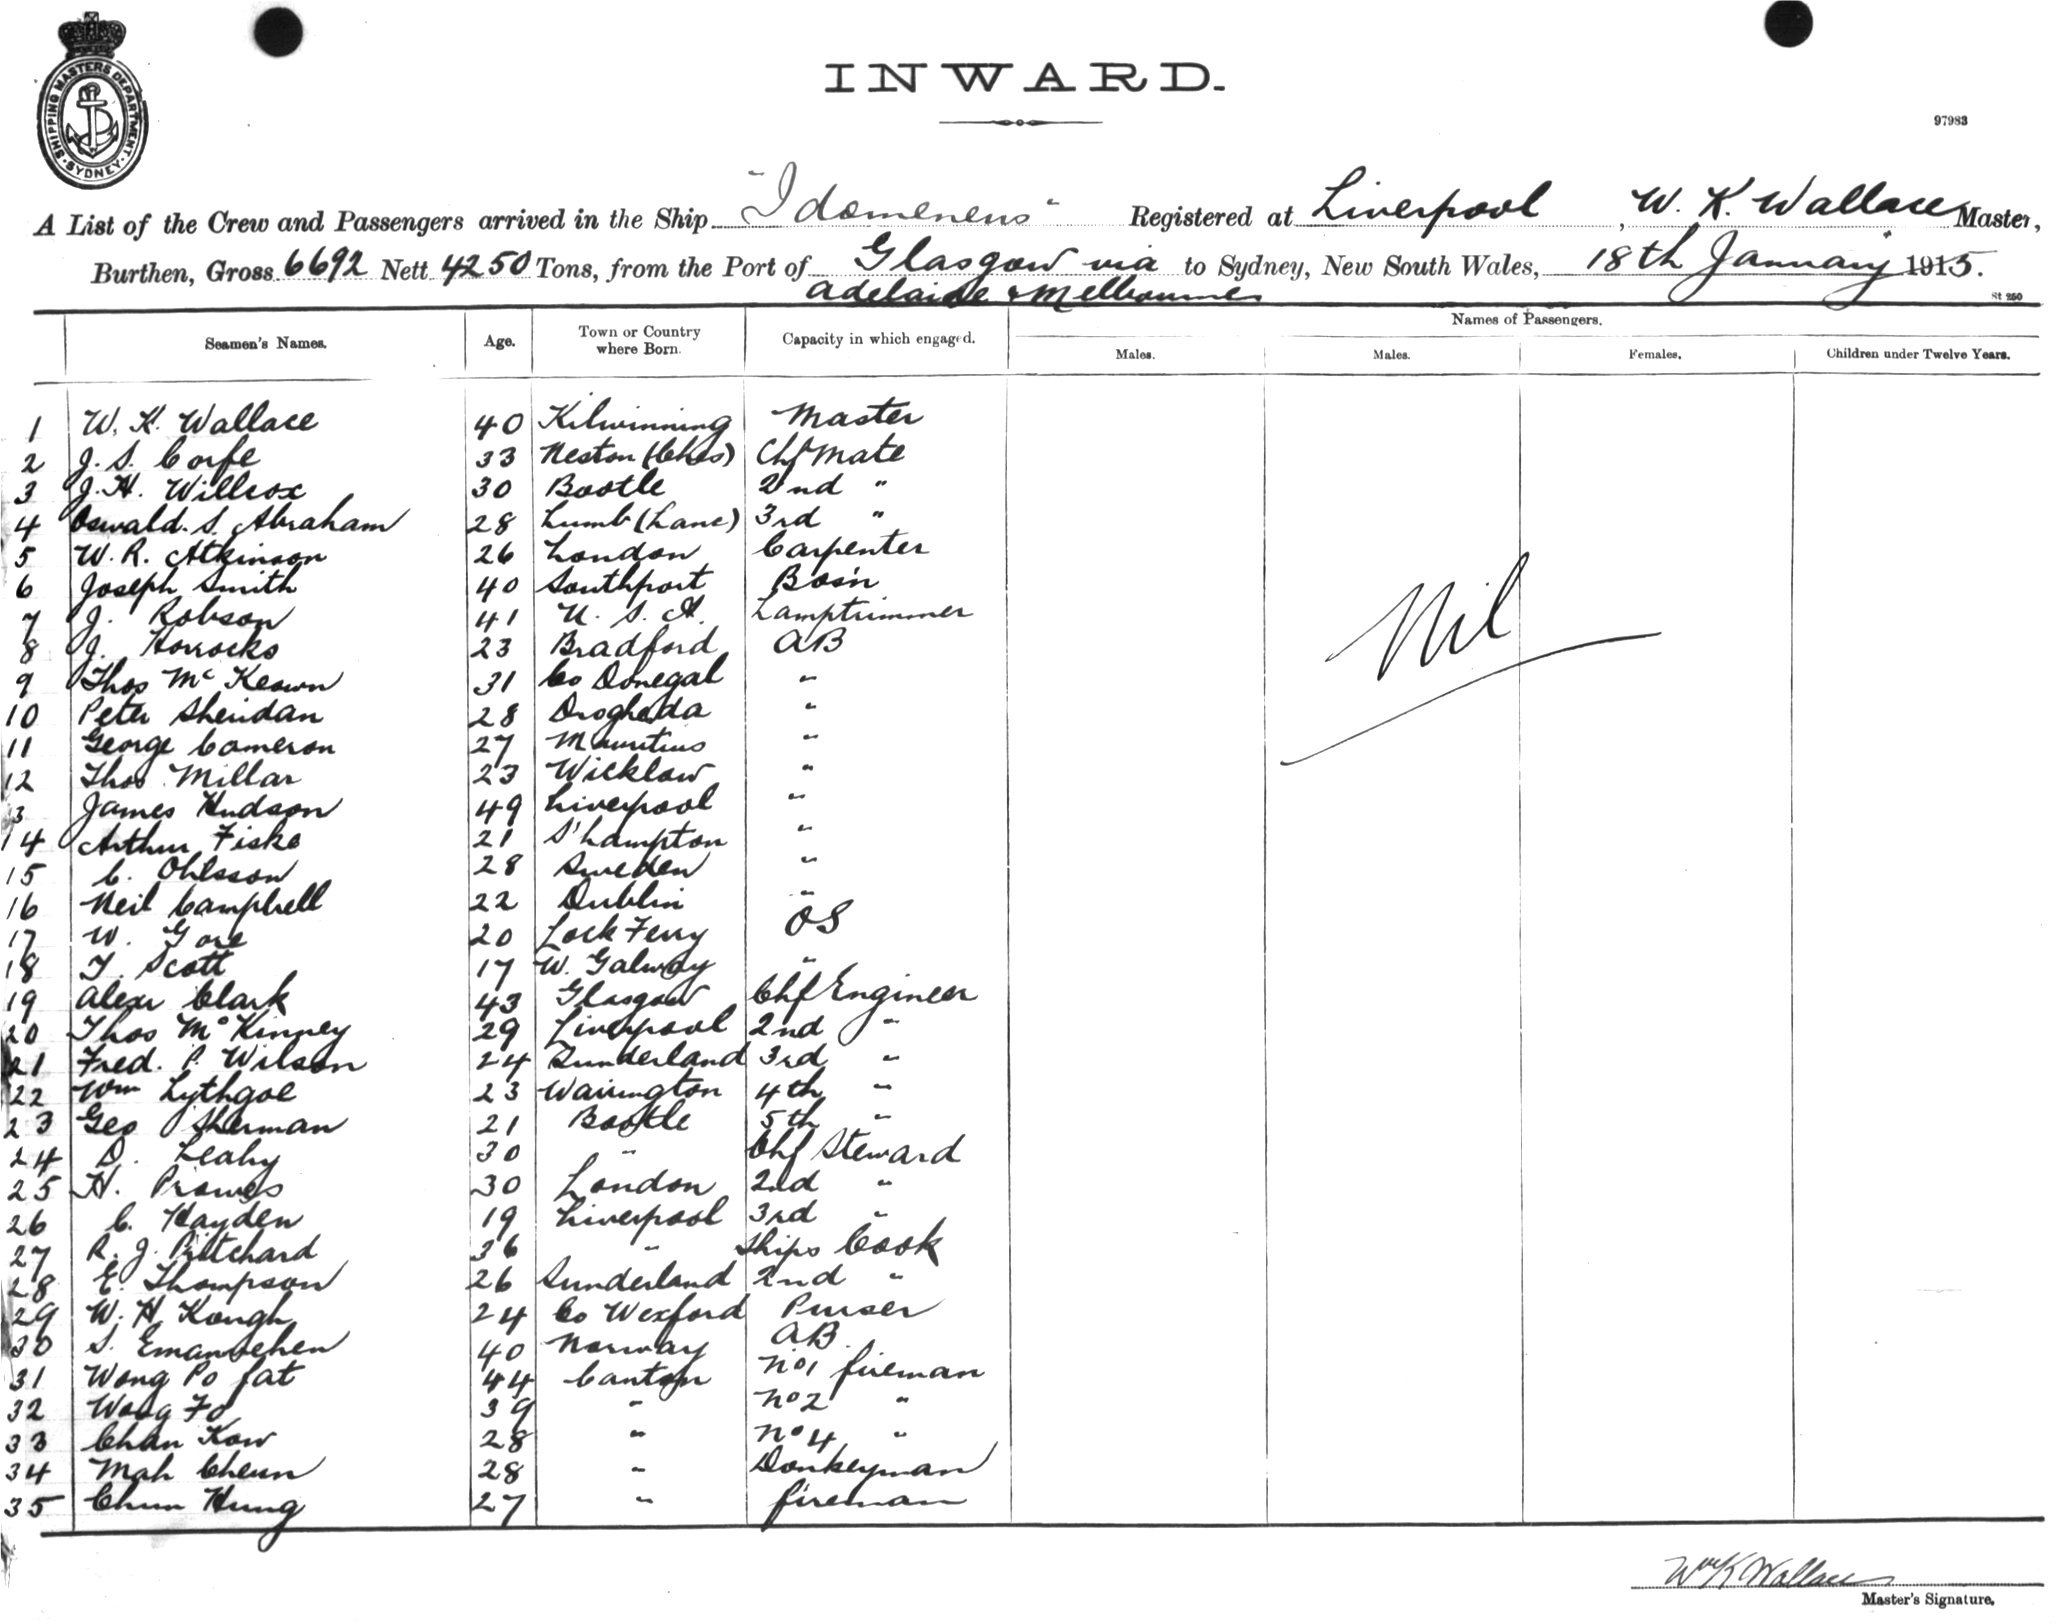 SHIPPING MASTERS DEPARTMENT. SYDNEY
INWARD.
97983
A List of the Crew and Passengers arrived in the Ship "Idomeneus" Registered at Liverpool, W. K. Wallace Master,
Burthen, Gross 6692 Nett 4250 Tons, from the Port of Glasgow via to Sydney, New South Wales, 18th January 1915.
Adelaide & Melbourne
St 250
Seamen's Names. Age. Town or Country where Born. Capacity in which engaged. Names of Passengers.
Males. Males. Females. Children under Twelve Years.
1 W. K. Wallace 40 Kilwinning Master
2 J. S. Corfe 33 Neston (Ches) Chf Mate
3 J. H. Willcox 30 Bootle 2nd "
4 Oswald. S. Abraham 28 Lumb (Lanc) 3rd "
5 W. R. Atkinson 26 London Carpenter
6 Joseph Smith 40 Southport Bos'n
7 J. Robson 41 U. S. A. Lamptrimmer
8 J. Horrocks 23 Bradford AB
9 Thos Mc Keown 31 Co Donegal "
10 Peter Sheridan 28 Drogheda "
11 George Cameron 27 Mauritius "
12 Thos Millar 23 Wicklow "
3 James Hudson 49 Liverpool "
14 Arthur Fiske 21 S'hampton "
15 C. Ohlsson 28 Sweden "
16 Neil Campbell 22 Dublin "
17 W. Gore 20 Lock Ferry OS
18 T. Scott 17 W. Galway "
19 Alexr Clark 43 Glasgow Chf Engineer
20 Thos Mc Kinney 29 Liverpool 2nd "
21 Fred. P. Wilson 24 Sunderland 3rd "
22 Wm Lythgoe 23 Warrington 4th "
23 Geo Sherman 21 Bootle 5th "
24 D. Leahy 30 " Chf Steward
25 H. Prowes 30 London 2nd "
26 C. Hayden 19 Liverpool 3rd "
27 R. J. Pritchard 36 " Ships Cook
28 E. Thompson 26 Sunderland 2nd "
29 W. H. Kough 24 Co Wexford Purser
30 S. 40 Norway AB
31 Wong Po fat 44 Canton No1 fireman
32 Wong Fo 39 " No2 "
33 Chan Kow 28 " No4 "
34 Mah Cheun 28 " Donkeyman
35 Chun Hung 27 " fireman
Nil
Wm K Wallace
Master's Signature.